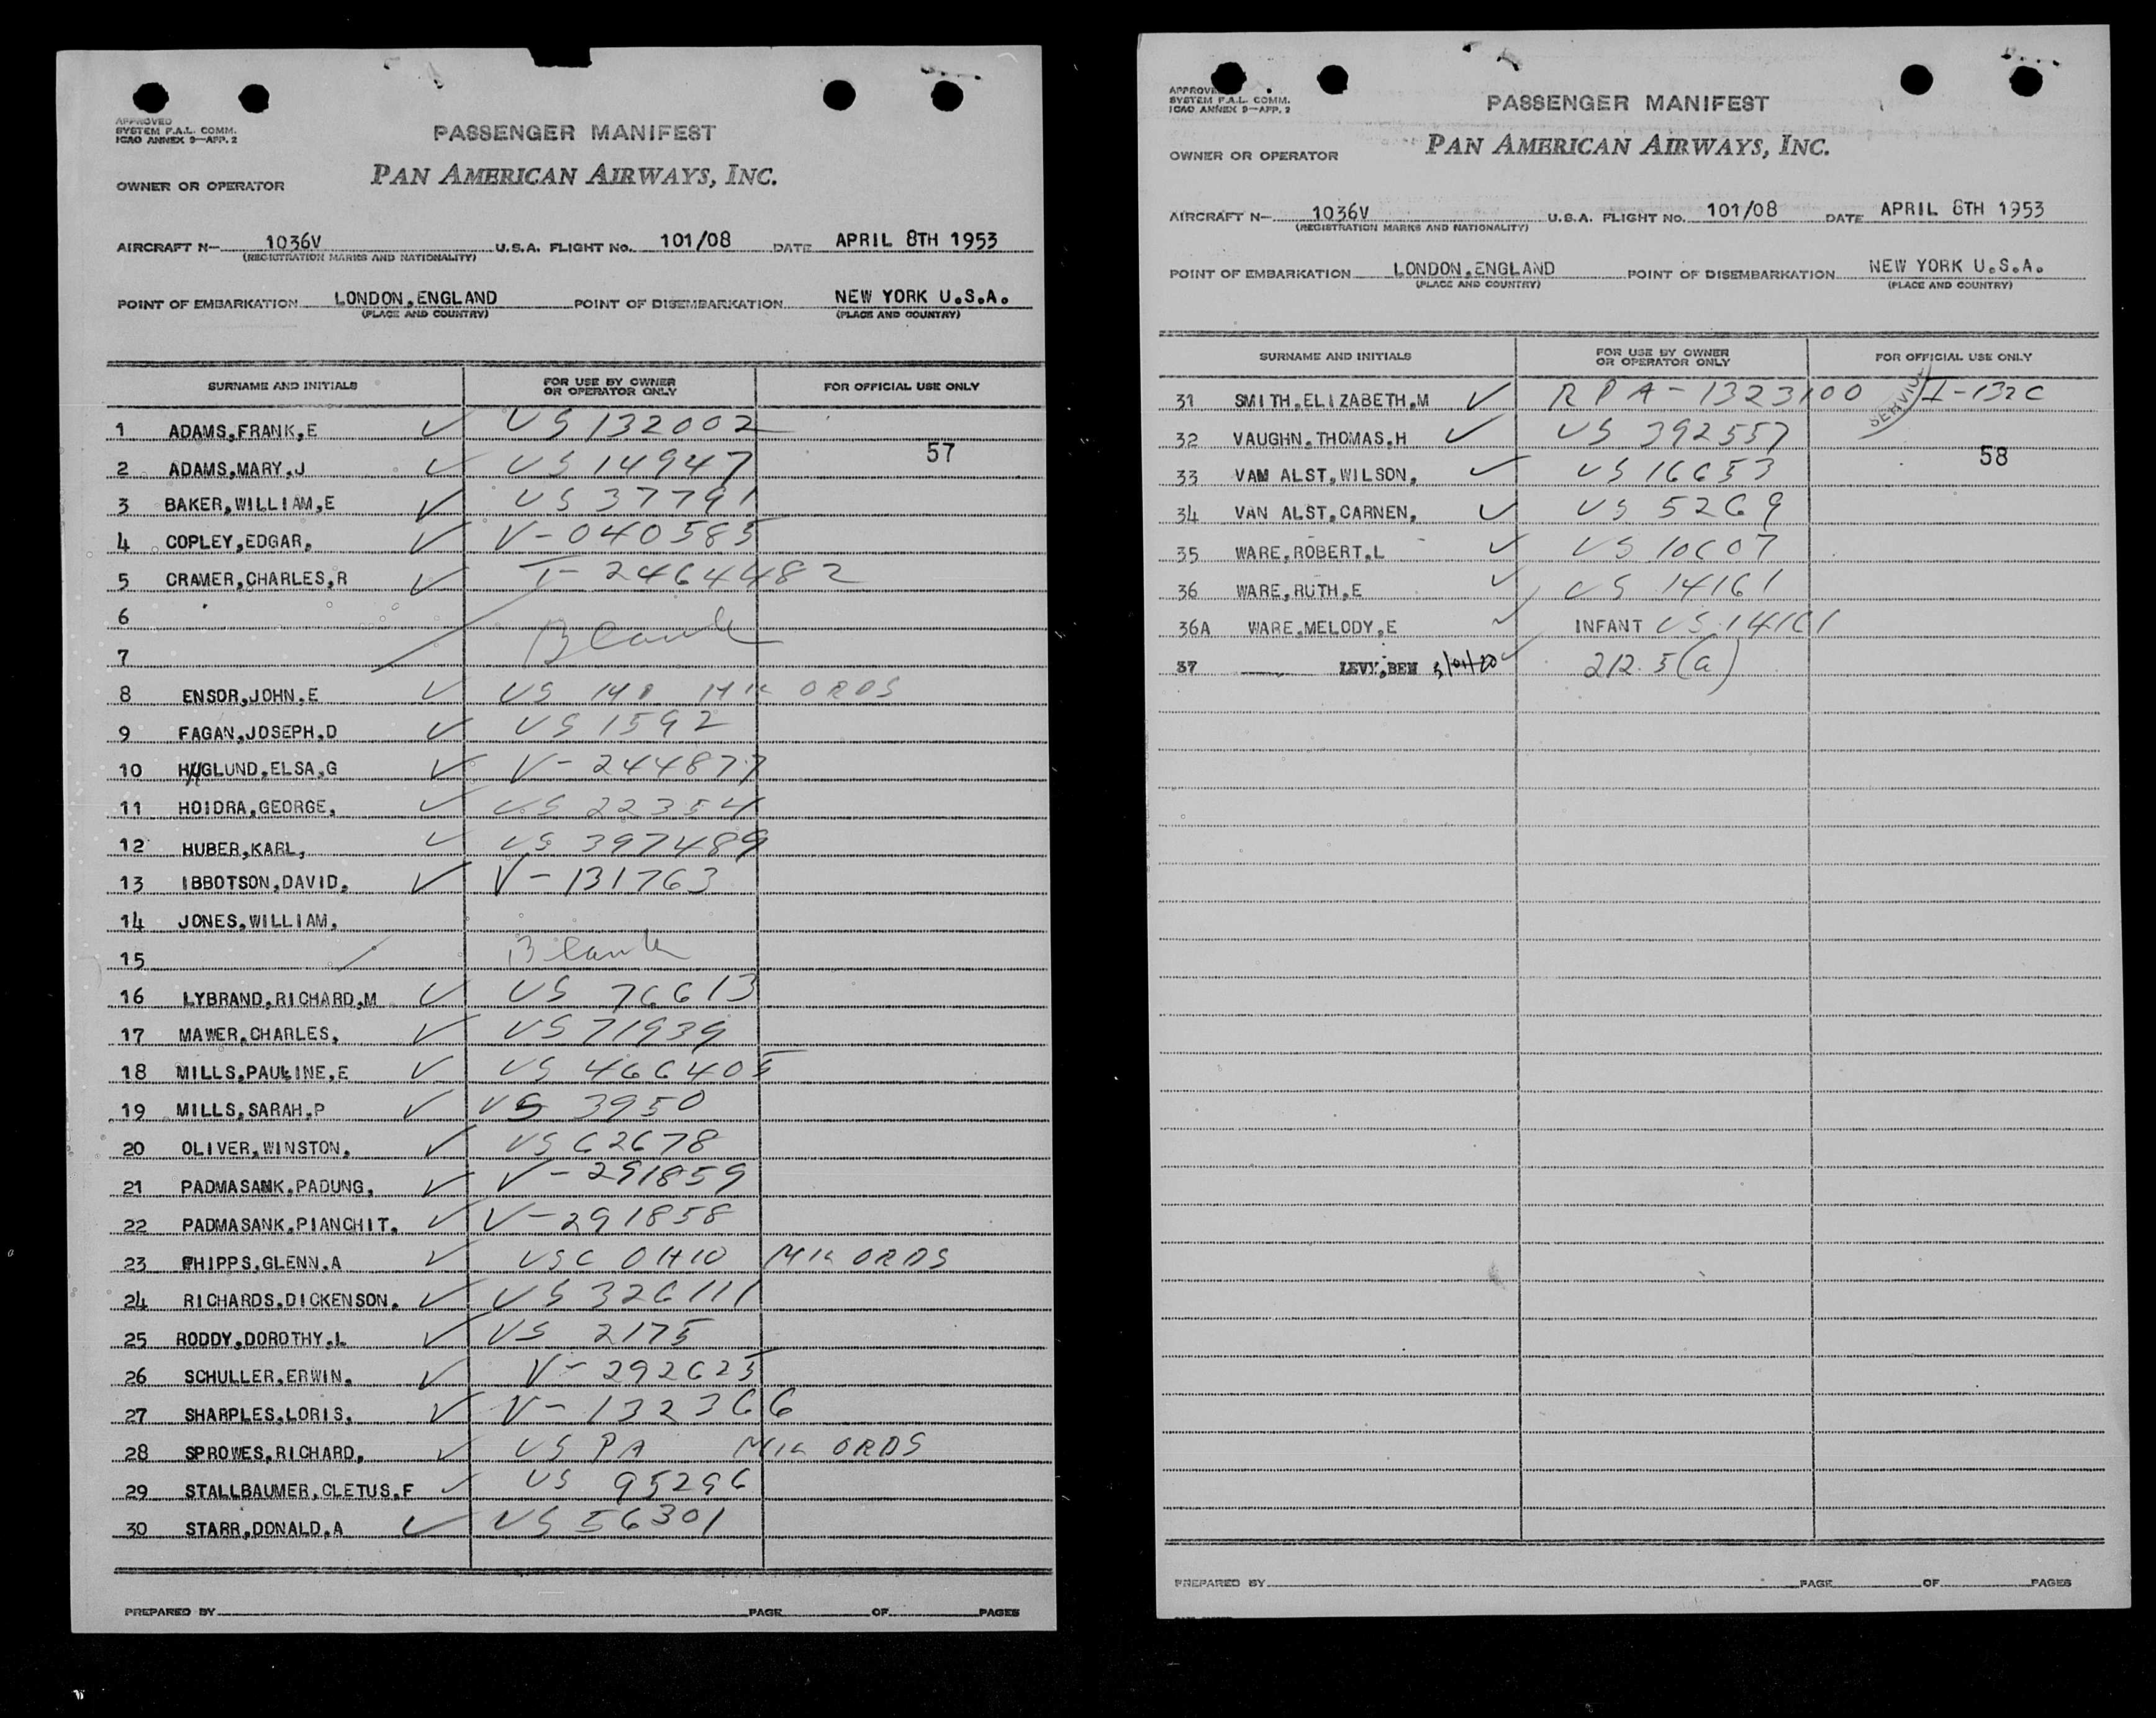 APPROVED
SYSTEM F.A.L. COMM.
ICAO ANNEX 9—APP. 2
PASSENGER MANIFEST
OWNER OR OPERATOR
PAN AMERICAN AIRWAYS, INC.
AIRCRAFT N- 1036V U.S.A. FLIGHT NO. 101/08 DATE APRIL 8TH 1953
(REGISTRATION MARKS AND NATIONALITY)
POINT OF EMBARKATION LONDON,ENGLAND POINT OF DISEMBARKATION NEW YORK U.S.A.
(PLACE AND COUNTRY) (PLACE AND COUNTRY)
SURNAME AND INITIALS FOR USE BY OWNER OR OPERATOR ONLY FOR OFFICIAL USE ONLY
1 ADAMS,FRANK,E ✓ US 132002
57
2 ADAMS,MARY,J ✓ US 14947
3 BAKER,WILLIAM,E ✓ US 37791
4 COPLEY,EDGAR, ✓ V-040585
5 CRAMER,CHARLES,R ✓ I-2464482
6
Blank
7
8 ENSOR,JOHN,E ✓ US MIL ORDS
9 FAGAN,JOSEPH,D ✓ US 1592
10 HUGLUND,ELSA,G ✓ V-244877
11 HOIDRA,GEORGE, ✓ US 22354
12 HUBER,KARL, ✓ US 397489
13 IBBOTSON,DAVID, ✓ V-131763
14 JONES,WILLIAM,
15 Blank
16 LYBRAND,RICHARD,M ✓ US 76613
17 MAWER,CHARLES, ✓ US 71939
18 MILLS,PAULINE,E ✓ US 466405
19 MILLS,SARAH,P ✓ US 3950
20 OLIVER,WINSTON, ✓ US 62678
21 PADMASANK,PADUNG, ✓ V-291859
22 PADMASANK,PIANCHIT, ✓ V-291858
23 PHIPPS,GLENN,A ✓ USC OHIO MIL ORDS
24 RICHARDS,DICKENSON, ✓ US 326111
25 RODDY,DOROTHY,L ✓ US 2175
26 SCHULLER,ERWIN, ✓ V-292625
27 SHARPLES,LORIS, ✓ V-132366
28 SPROWES,RICHARD, ✓ US PA MIL ORDS
29 STALLBAUMER,CLETUS,F ✓ US 95296
30 STARR,DONALD,A ✓ US 56301
PREPARED BY PAGE OF PAGES
APPROVED
SYSTEM F.A.L. COMM.
ICAO ANNEX 9—APP. 2
PASSENGER MANIFEST
OWNER OR OPERATOR
PAN AMERICAN AIRWAYS, INC.
AIRCRAFT N- 1036V U.S.A. FLIGHT NO. 101/08 DATE APRIL 8TH 1953
(REGISTRATION MARKS AND NATIONALITY)
POINT OF EMBARKATION LONDON,ENGLAND POINT OF DISEMBARKATION NEW YORK U.S.A.
(PLACE AND COUNTRY) (PLACE AND COUNTRY)
SURNAME AND INITIALS FOR USE BY OWNER OR OPERATOR ONLY FOR OFFICIAL USE ONLY
31 SMITH,ELIZABETH,M ✓ RPA-1323100 SERVICE I-132C
32 VAUGHN,THOMAS,H ✓ US 392557
58
33 VAN ALST,WILSON, ✓ US 16653
34 VAN ALST,CARNEN, ✓ US 5269
35 WARE,ROBERT,L ✓ US 10607
36 WARE,RUTH,E ✓ US 14161
36A WARE,MELODY,E ✓ INFANT US 14161
37 LEVY,BEN ✓ 212.5(a)
PREPARED BY PAGE OF PAGES